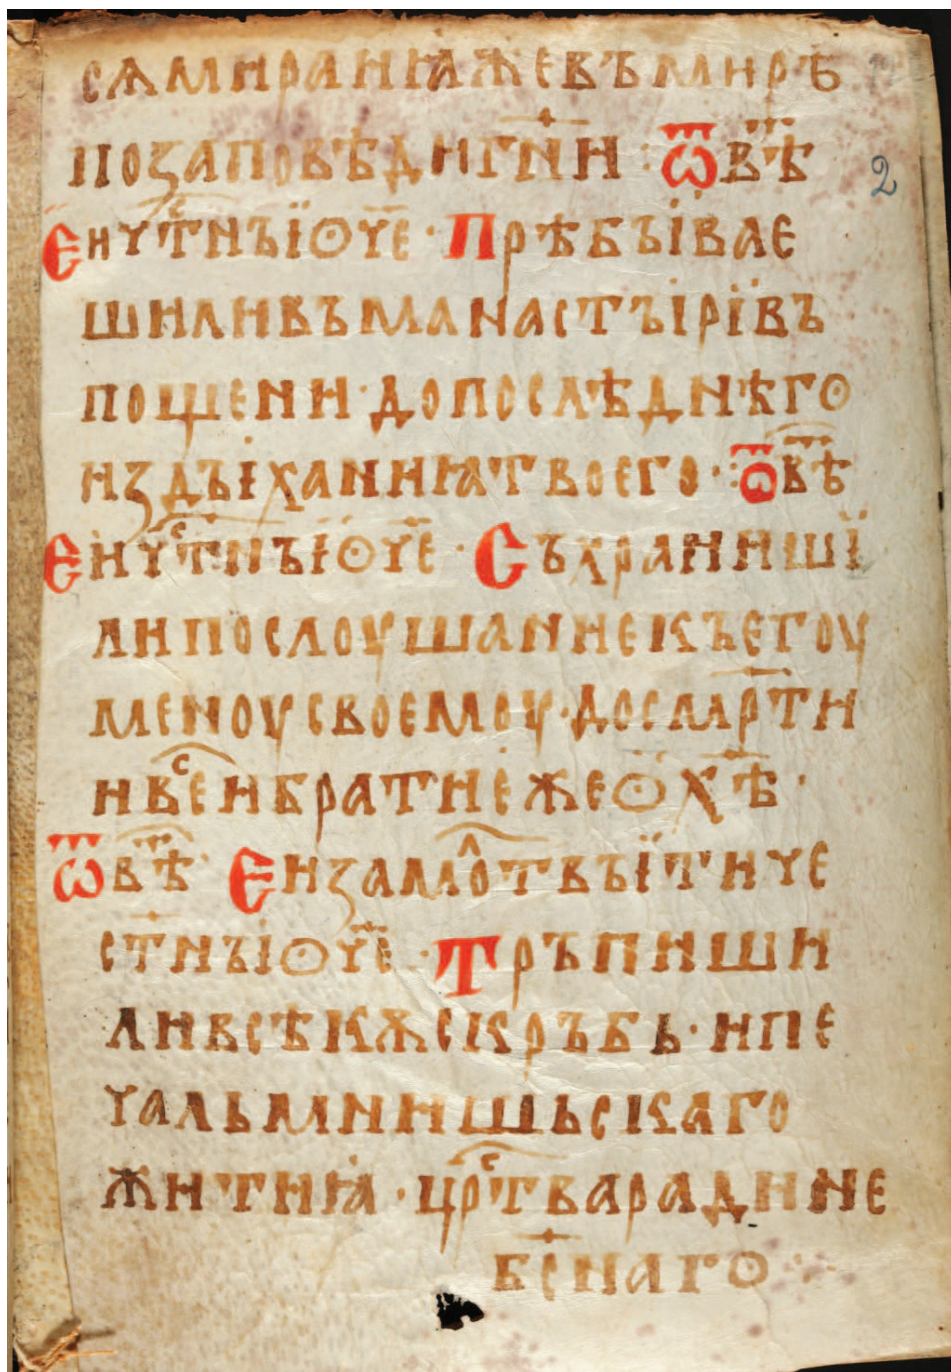 сѧмиранꙗжевъмирѣ
позаповѣдигн҃и · ѿвѣ 2
Еиꙋⷭ҇тнъіѻч҃е · Прѣбъівае
шиливъманастъірївъ
пощени · допослѣднѣго
издъіханиꙗтвоего · ѿвѣ
Еиꙋⷭ҇тнъіѻч҃е · Съхраниші
липослоушаниекъегоу
меноусвоемоу · досмр҃ти
ивⷭ҇еибратиежеѻх҃ѣ ·
ѿвѣ Еизамⷧ҇отвъїтиче
ст҃нъіѻч҃е · Трьпиши
ливсѣкѫскръбь · ипе
чальмнишьскаго
житиꙗ · црⷭ҇тварадине
бс҃наго